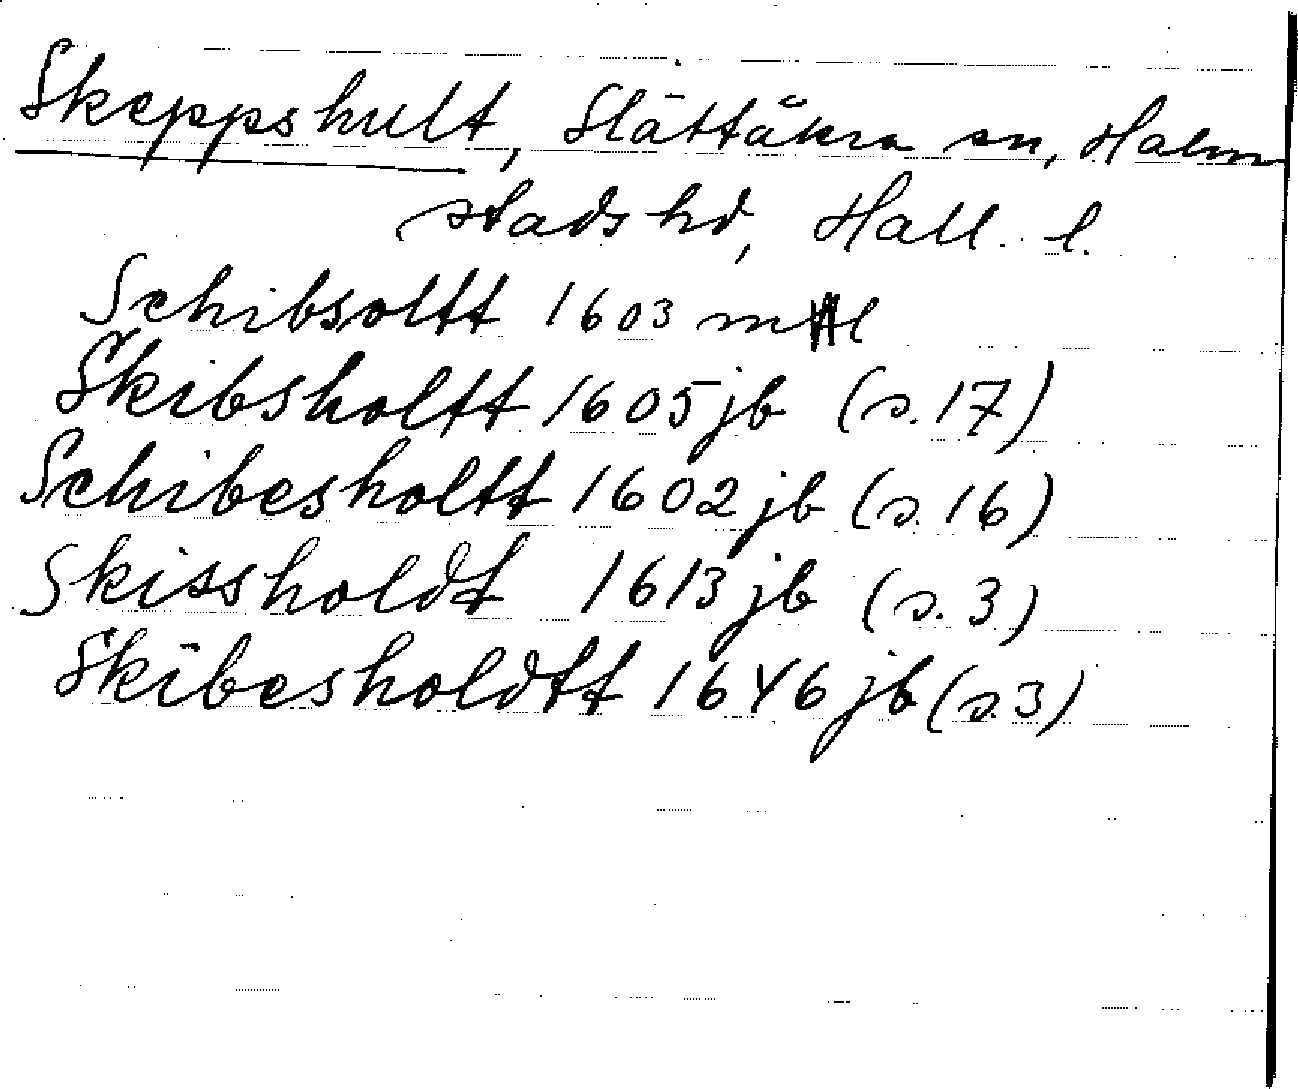 Skeppshult, Slättåkra sn, Halm
stads hd, Hall. l.
Schibsoltt 1603 mtl
Skibsholtt 1605 jb (s. 17)
Schibesholtt 1602 jb (s. 16)
Skissholdt 1613 jb (s. 3)
Skibesholdtt 1646 jb (s. 3)